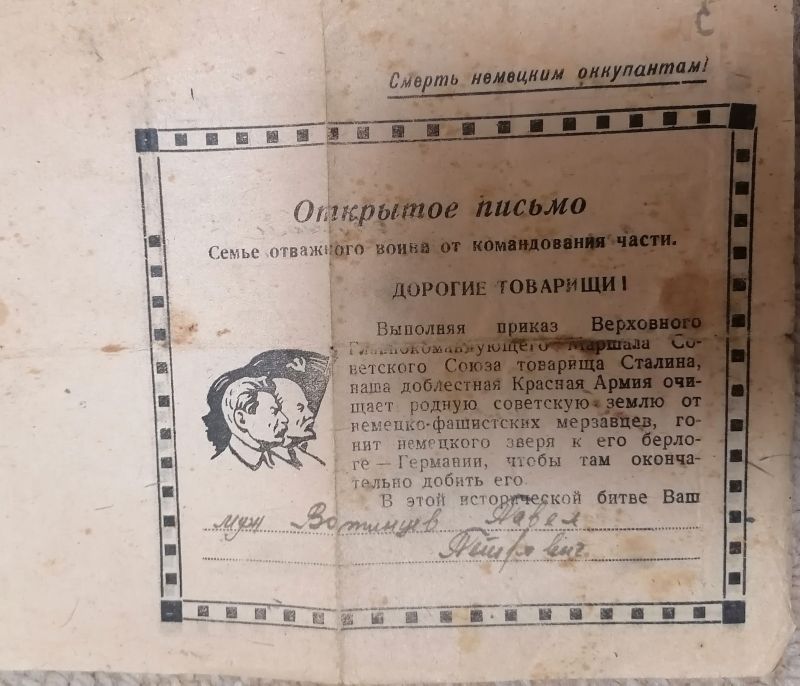 Смерть немецким оккупантам!
Открытое письмо
Семье отважного воина от командования части.
ДОРОГИЕ ТОВАРИЩИ!
Выполняя приказ Верховного
Главнокомандующего Маршала Со-
ветского Союза товарища Сталина,
наша доблестная Красная Армия очи-
щает родную советскую землю от
немецко-фашистских мерзавцев, го-
нит немецкого зверя к его берло-
ге — Германии, чтобы там оконча-
тельно добить его.
В этой исторической битве Ваш
муж Вотинцев Павел
Петрович